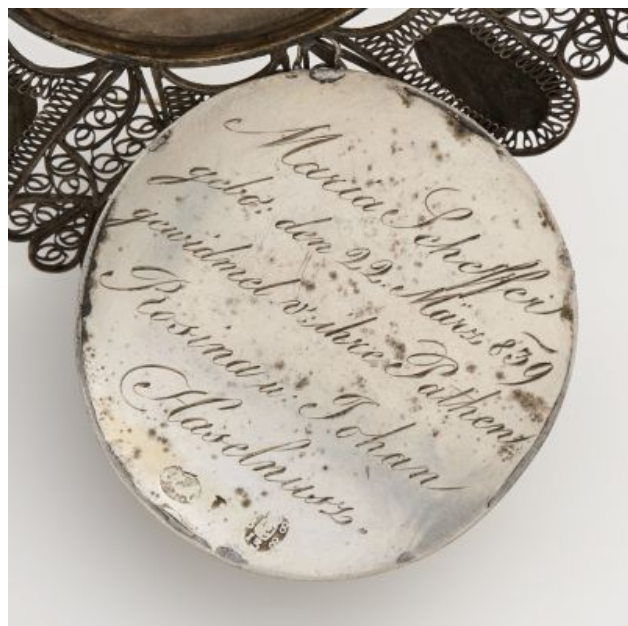 Maria Scheffer
gebo: den 22. März 839
gewidmet v: ihre Pathent
Rosina u: Johan
Haselnusz.